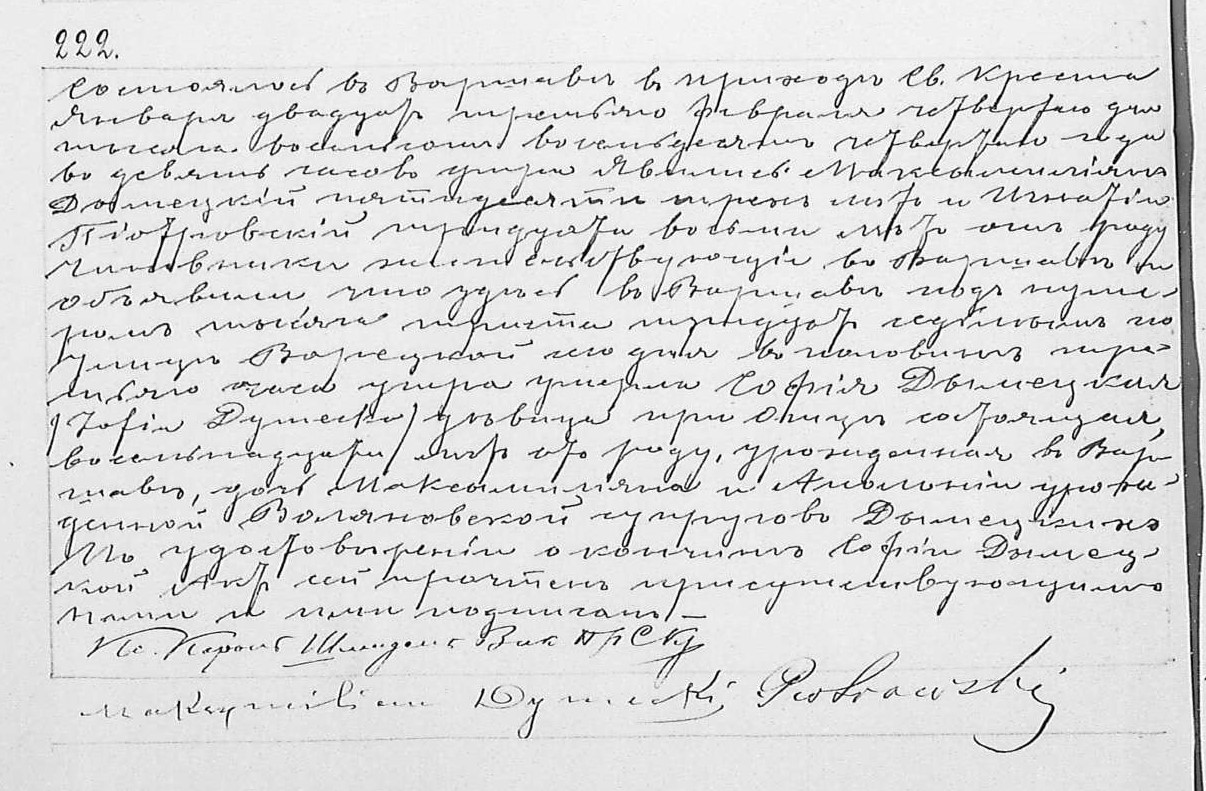 222.
Состоялось въ Варшавѣ въ приходѣ Св. Креста
Января двадцать третьяго Февраля четвертаго дня
тысяча восемьсотъ восемьдесятъ четвертаго года
во девять часовъ утра. Явились Максимиліянъ
Дымецкій пятидесяти трехъ лѣтъ и Игнатій
Піотровскій тридцати восьми лѣтъ отъ роду
чиновники жительствующіе въ Варшавѣ и
объявили, что здѣсь въ Варшавѣ подъ нуме-
ромъ тысяча триста тридцать седьмымъ по
улицѣ Варецкой сего дня въ половинѣ тре-
тьяго часа утра умерла Софія Дымецкая
/Zofia Dymecka/ дѣвица при отцѣ состоящая,
восемнадцати лѣтъ отъ роду, урожденная въ Вар-
шавѣ, дочь Максимиліяна и Аполоніи урож-
денной Воляновской супруговъ Дымецкихъ
По удостовѣреніи о кончинѣ Софіи Дымец-
кой Актъ сей прочтенъ присутствующимъ
нами и ими подписанъ. —
Кс. Кароль Шмидель Вик П С Кр
Maksymilian Dymecki Piotrowski